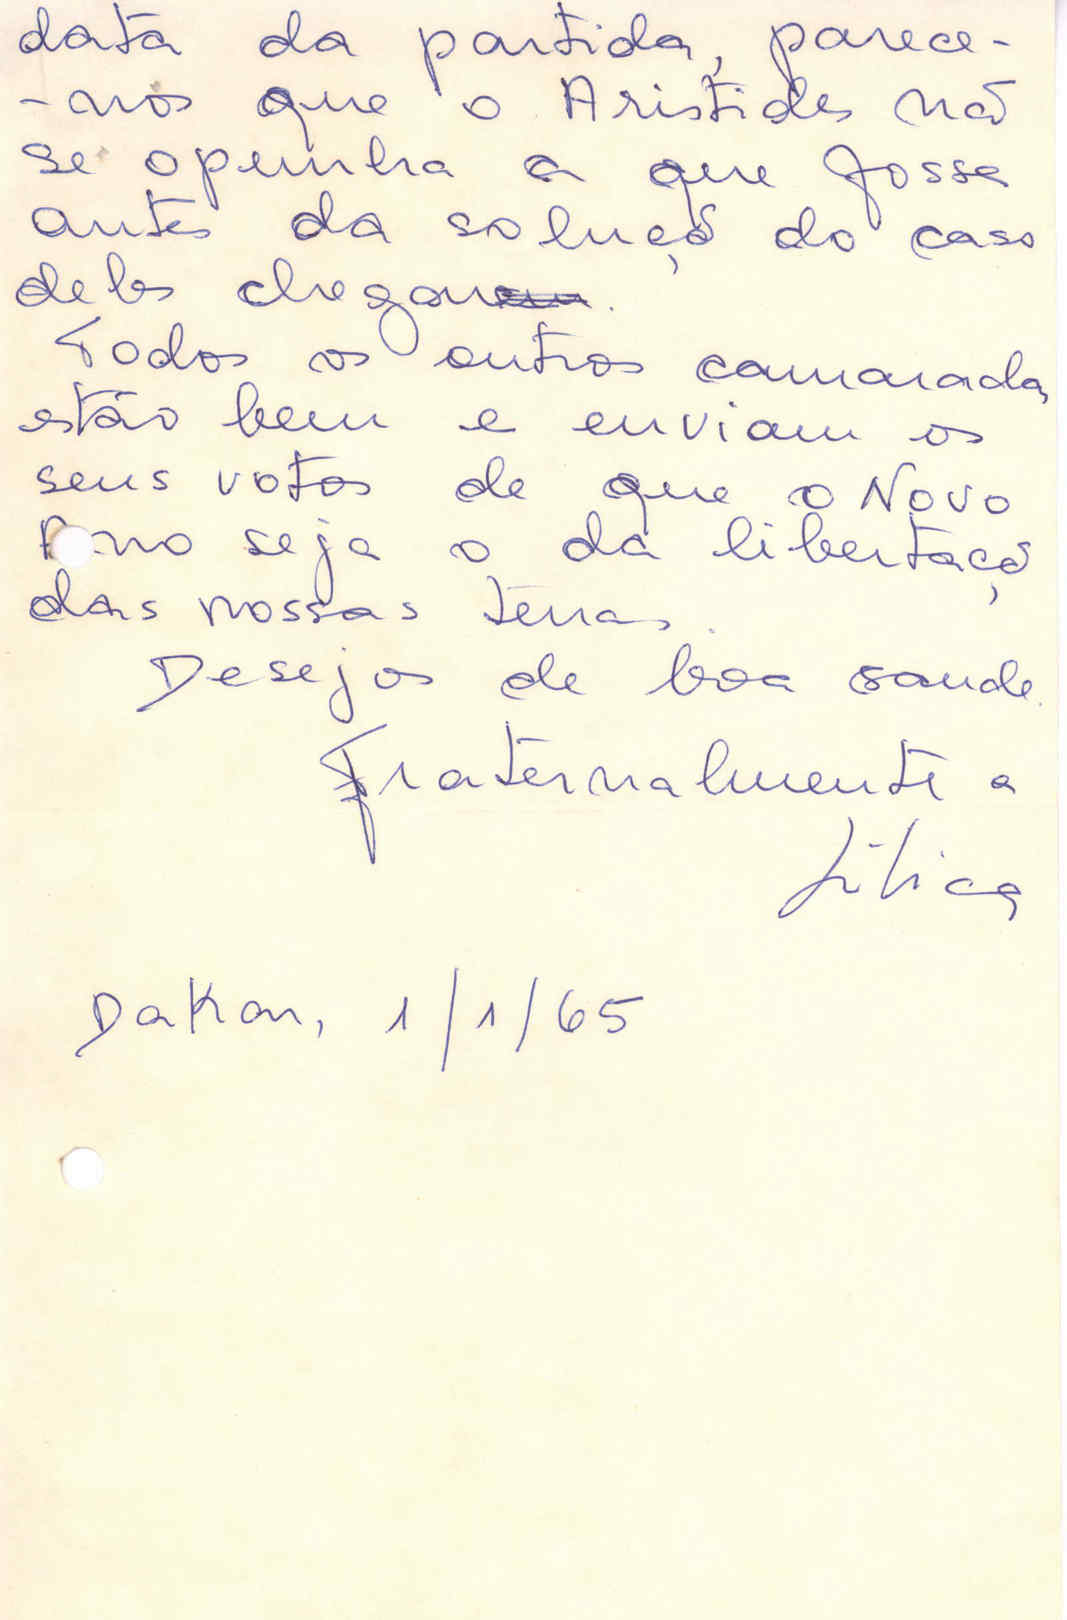 data da partida, parece-
-nos que o Aristides não
se opunha a que fosse
antes da solução do caso
deles chegar.
Todos os outros camaradas
estão bem e enviam os
seus votos de que o Novo
Ano seja o da libertação
das nossas terras.
Desejos de boa saude.
Fraternalmente a
Lilica
Dakar, 1/1/65